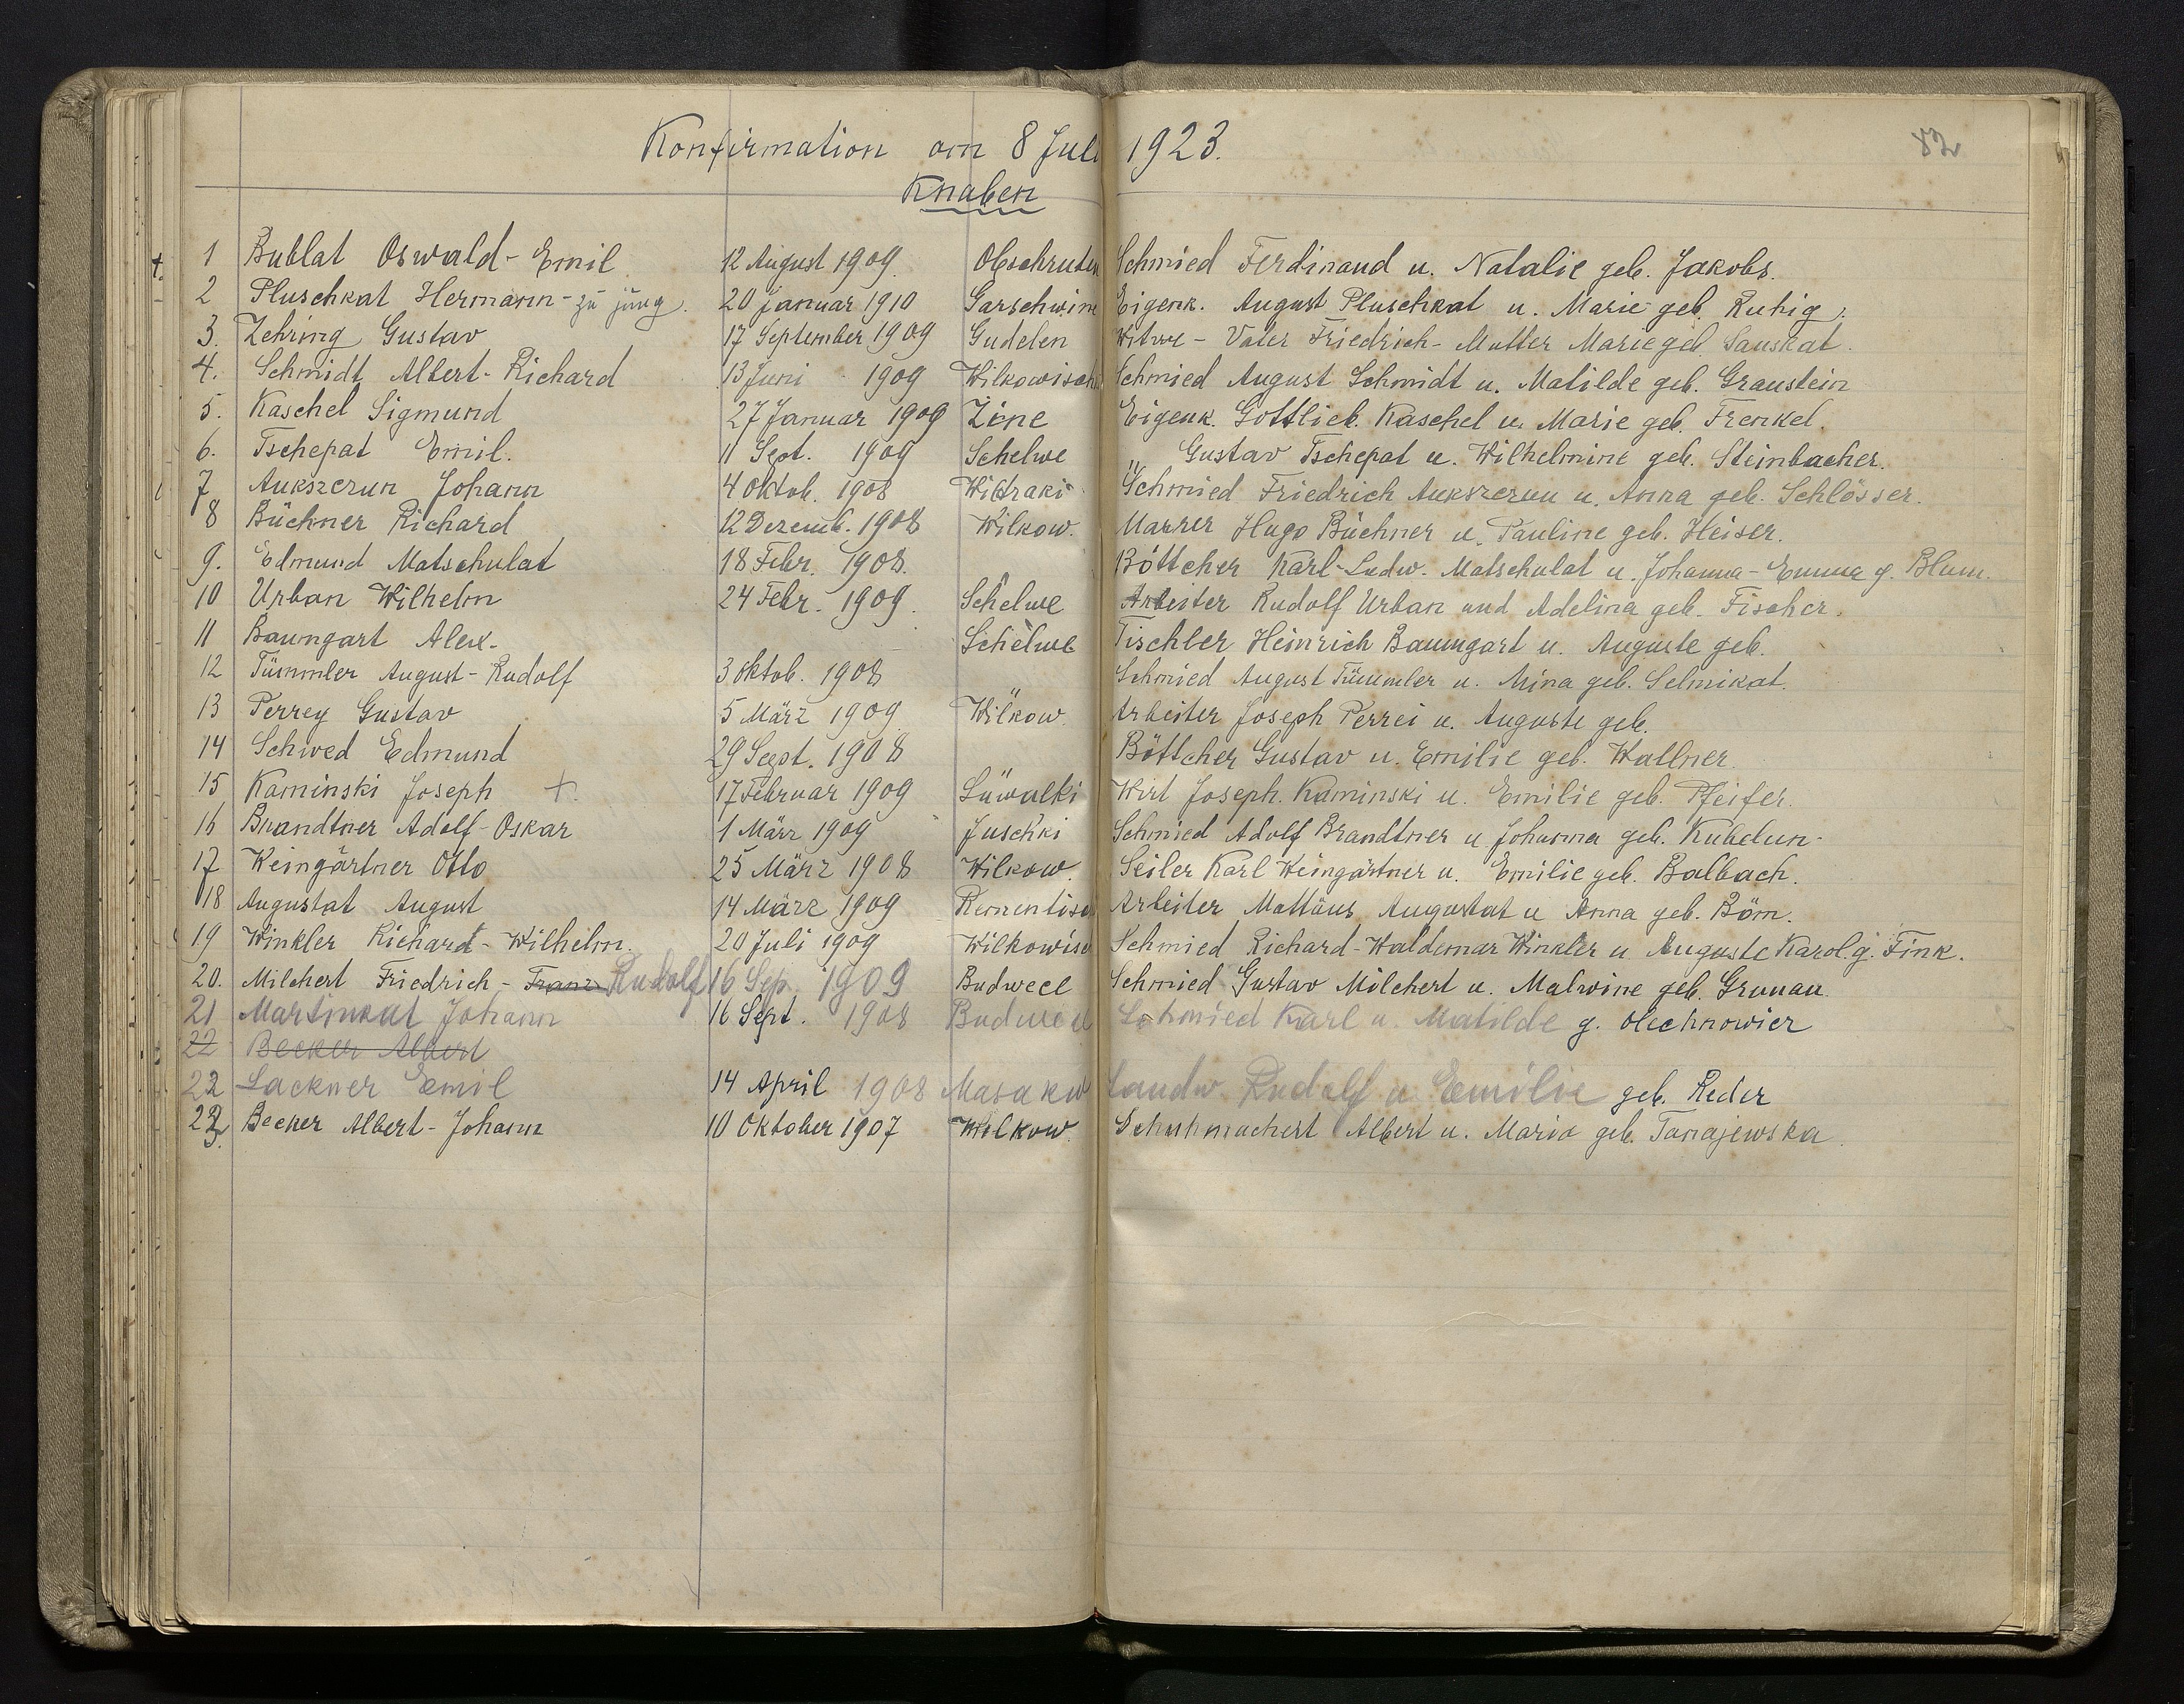 Konfirmation am 8 Juli 1923.
82
Knaben
+ 1 Bublat Oswald-Emil 12 August 1909 Obschruten Schmied Ferdinand u. Natalie geb. Jakobs.
2 Pluschkat Hermann - zu jung. 20 Januar 1910 Garschwine Eigenk. August Pluschkat u. Marie geb. Ruhig.
3. Zehring Gustav 17 September 1909 Gudelen Witwe - Vater Friedrich - Mutter Marie geb. Sauskat.
4. Schmidt Albert-Richard 13 Juni 1909 Wilkowisch Schmied August Schmidt u. Matilde geb. Graustein
5. Kaschel Sigmund 27 Januar 1909 Zine Eigenk. Gottlieb Kaschel u. Marie geb. Frenkel.
6. Tschepat Emil. 11 Sept. 1909 Schelwe " Gustav Tschepat u. Wilhelmine geb. Steinbacher.
7 Aukszerun Johann 4 Oktob. 1908 Widraki Schmied Friedrich Aukszerun u. Anna geb. Schlösser.
8 Büchner Richard 12 Dezemb. 1908 Wilkow. Maurer Hugo Büchner u. Pauline geb. Heiser.
9. Edmund Matschulat 18 Febr. 1908. Böttcher Karl-Ludw. Matschulat u. Johanna-Emma g. Blum.
10 Urban Wilhelm 24 Febr. 1909. Schelwe Arbeiter Rudolf Urban und Adelina geb. Fischer.
11 Baumgart Alex. Schelwe Tischler Heinrich Baumgart u. Auguste geb.
12 Tümmler August-Rudolf 3 Oktob. 1908 Schmied August Tümmler u. Mina geb. Selmikat.
13 Perrey Gustav 5 März 1909 Wilkow. Arbeiter Joseph Perrei u. Auguste geb.
14 Schwed Edmund 29 Sept. 1908 Böttcher Gustav u. Emilie geb. Wallner.
15 Kaminski Joseph + 17 Februar 1909 Suwalki Wirt Joseph Kaminski u. Emilie geb. Pfeifer.
16 Brandtner Adolf-Oskar 1 März 1909 Juschki Schmied Adolf Brandtner u. Johanna geb. Kubelun-
17 Weingärtner Otto 25 März 1908 Wilkow. Seiler Karl Weingärtner u. Emilie geb. Balbach.
18 Augustat August 14 März 1909 Rementisch Arbeiter Mattäus Augustat u Anna geb. Böm.
19 Winkler Richard-Wilhelm. 20 Juli 1909 Wilkowisc Schmied Richard-Waldemar Winkler u Auguste Karol. g. Fink.
20. Milchert Friedrich - Franz Rudolf 16 Sep. 1909 Budwece Schmied Gustav Milchert u. Malwine geb. Grunau.
21 Martinkat Johann 16 Sept. 1908 Budwece Schmied Karl u. Matilde g. Olechnowicz
22 Becker Albert
22 Lackner Emil 14 April 1908 Masakw Landw. Rudolf u Emilie geb. Reder
23. Becker Albert-Johann 10 Oktober 1907 Wilkow. Schuhmachert Albert u. Maria geb. Tanajewska.